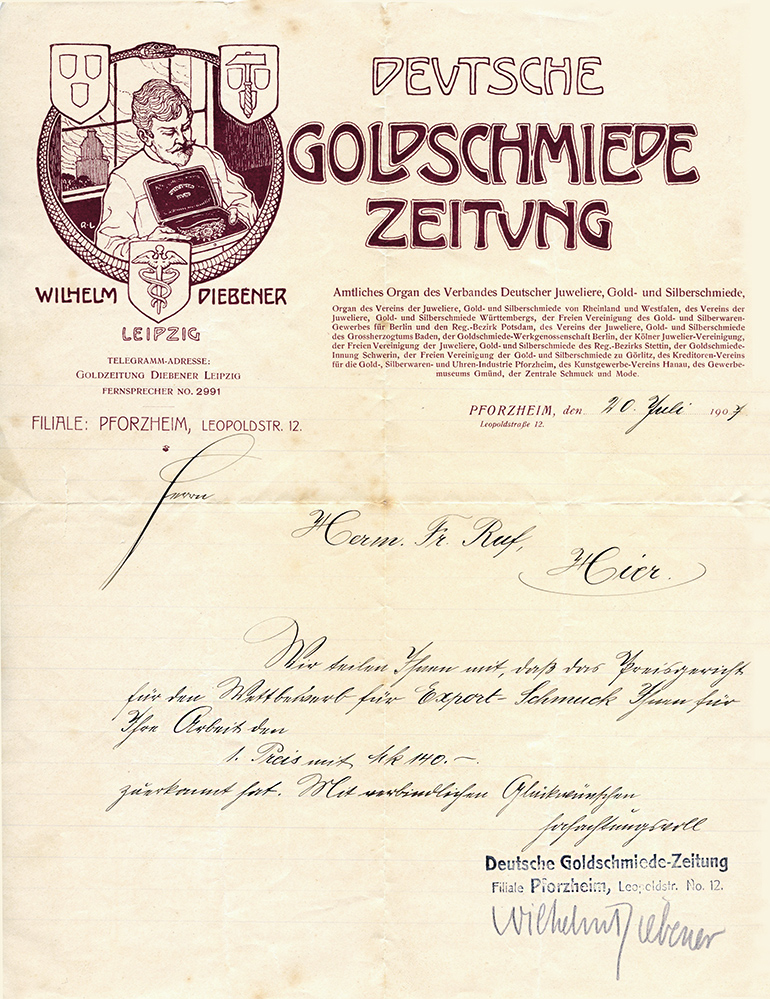 DEUTSCHE
GOLDSCHMIEDE
ZEITUNG
R·L
WILHELM DIEBENER
LEIPZIG
TELEGRAMM-ADRESSE:
GOLDZEITUNG DIEBENER LEIPZIG
FERNSPRECHER NO. 2991
FILIALE: PFORZHEIM, LEOPOLDSTR. 12.
Amtliches Organ des Verbandes Deutscher Juweliere, Gold- und Silberschmiede,
Organ des Vereins der Juweliere, Gold- und Silberschmiede von Rheinland und Westfalen, des Vereins der
Juweliere, Gold- und Silberschmiede Württembergs, der Freien Vereinigung des Gold- und Silberwaren-
Gewerbes für Berlin und den Reg.-Bezirk Potsdam, des Vereins der Juweliere, Gold- und Silberschmiede
des Grossherzogtums Baden, der Goldschmiede-Werkgenossenschaft Berlin, der Kölner Juwelier-Vereinigung,
der Freien Vereinigung der Juweliere, Gold- und Silberschmiede des Reg.-Bezirks Stettin, der Goldschmiede-
Innung Schwerin, der Freien Vereinigung der Gold- und Silberschmiede zu Görlitz, des Kreditoren-Vereins
für die Gold-, Silberwaren- und Uhren-Industrie Pforzheim, des Kunstgewerbe-Vereins Hanau, des Gewerbe-
museums Gmünd, der Zentrale Schmuck und Mode.
PFORZHEIM, den 20. Juli 1907
Leopoldstraße 12.
Herrn
Herm. Fr. Ruf,
Hier.
Wir teilen Ihnen mit, daß das Preisgericht
für den Wettbewerb für Export-Schmuck Ihnen für
Ihre Arbeit den
1. Preis mit Mk 140.–
zuerkannt hat. Mit verbindlichen Glückwünschen
hochachtungsvoll
Deutsche Goldschmiede-Zeitung
Filiale Pforzheim, Leopoldstr. No. 12.
Wilhelm Diebener